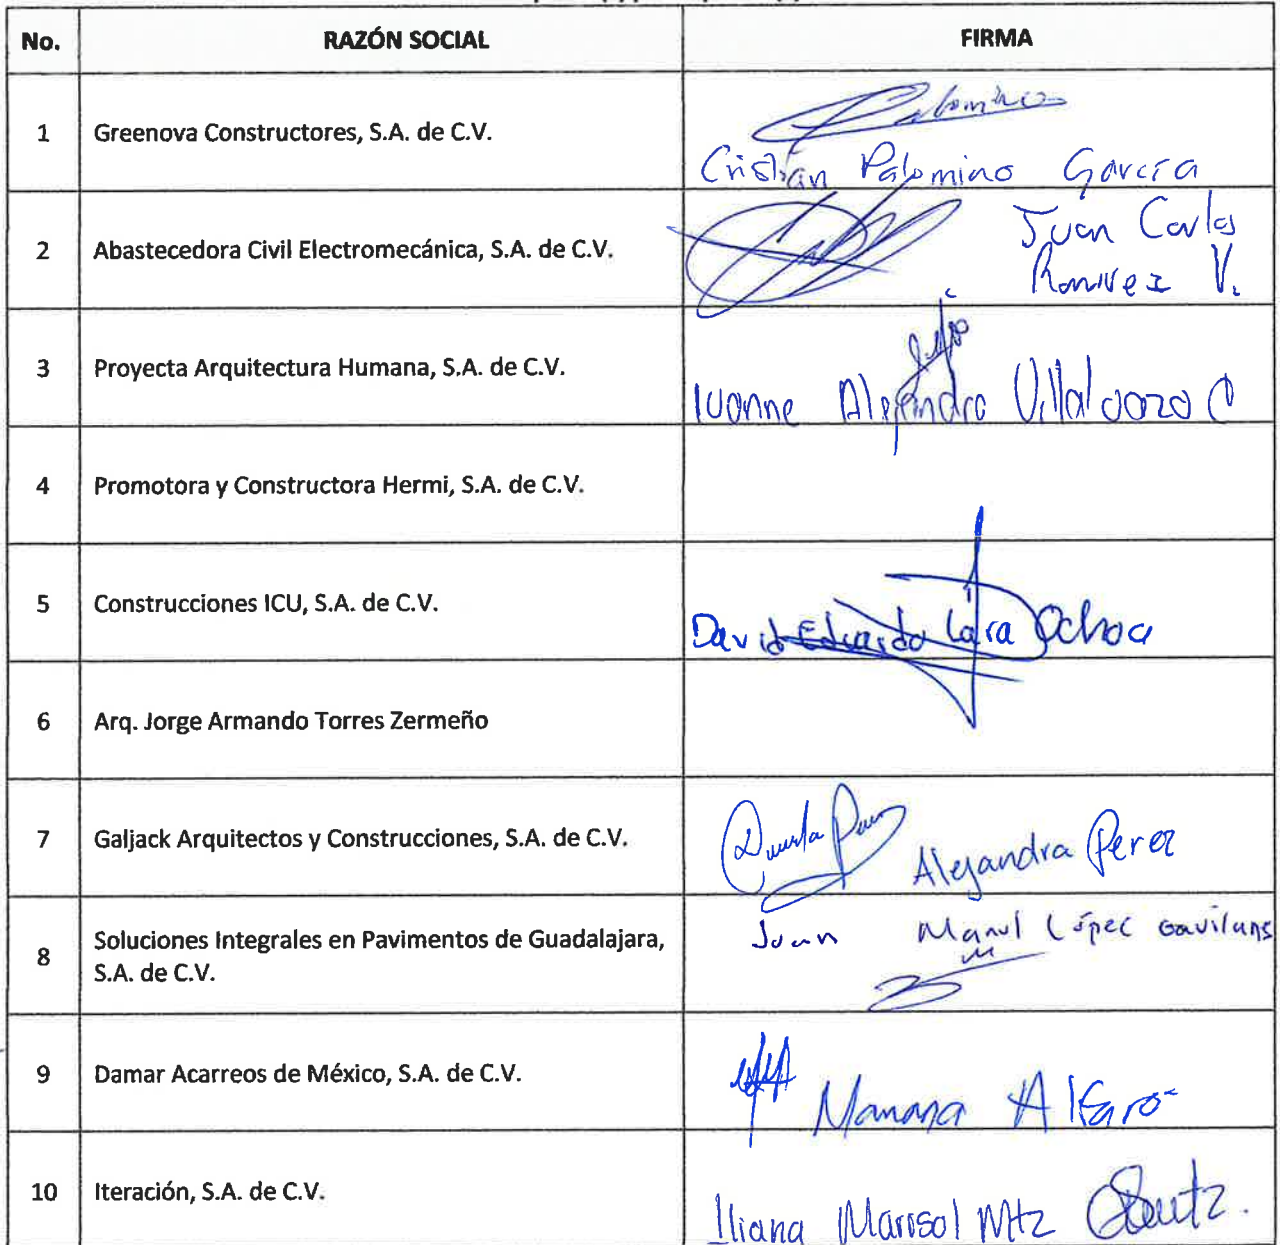 No. RAZÓN SOCIAL FIRMA
1 Greenova Constructores, S.A. de C.V.
Palomino
Cristian Palomino García
2 Abastecedora Civil Electromecánica, S.A. de C.V.
Juan Carlos
Ramirez V.
3 Proyecta Arquitectura Humana, S.A. de C.V.
Ivonne Alejandra
4 Promotora y Constructora Hermi, S.A. de C.V.
5 Construcciones ICU, S.A. de C.V.
David Eduardo Lara Ochoa
6 Arq. Jorge Armando Torres Zermeño
7 Galjack Arquitectos y Construcciones, S.A. de C.V.
Alejandra Perez
8 Soluciones Integrales en Pavimentos de Guadalajara,
S.A. de C.V.
Juan Manul López
9 Damar Acarreos de México, S.A. de C.V.
Mariana Alfaro
10 Iteración, S.A. de C.V.
Iliana Marisol Mtz